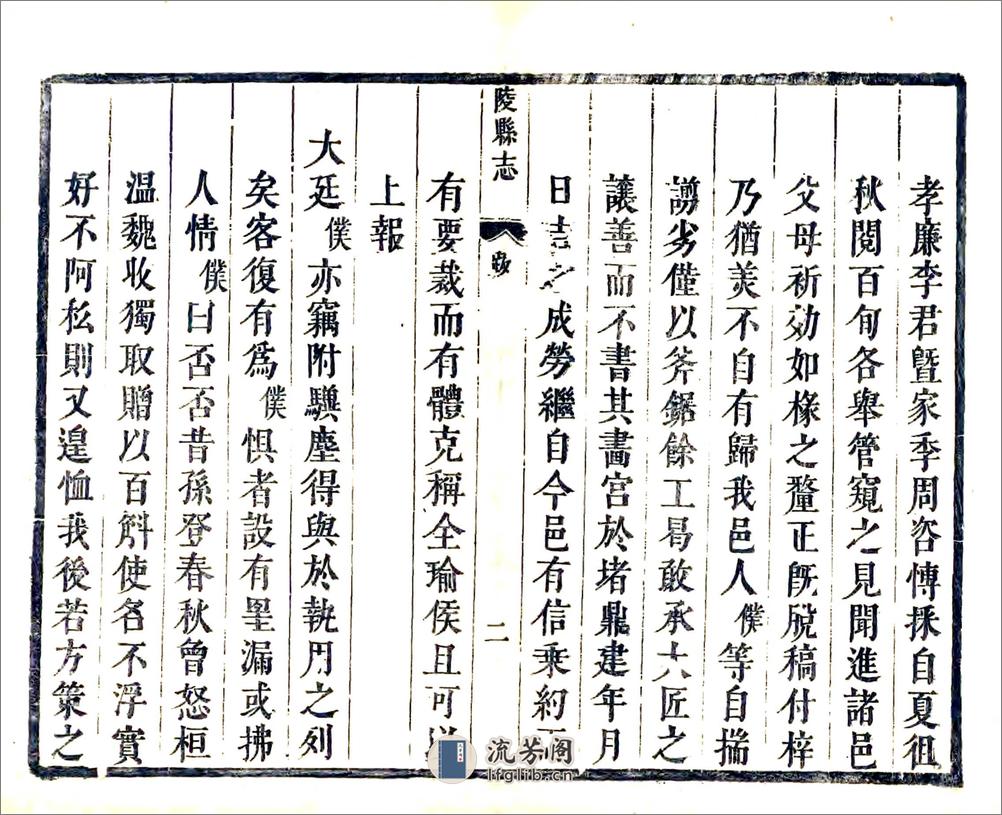 孝廉李君曁家季周咨愽採自夏徂
秋閱百旬各舉管窺之見聞進諸邑
父母祈効如椽之釐正旣脫稿付梓
乃猶羙不自有歸我邑人僕等自揣
謭劣僅以斧鋸餘工曷敢承大匠之
讓善而不書其畵宮於堵鼎建年月
日之成勞繼自今邑有信乗約
陵縣志
二
有要裁而有體克稱全瑜侯且可
上報
大廷僕亦竊附驥塵得與於執丹之列
矣客復有爲僕惧者設有罣漏或拂
人情僕曰否否昔孫登春秋曾怒桓
温魏收獨取贈以百斛使名不浮實
好不阿私則又遑恤我後若方策之
流芳阁
lfglib.cn